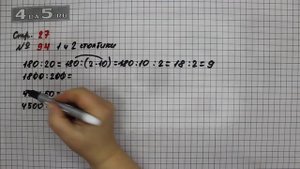 4 LA 5.RU
Стр. 27
№ 94 1 и 2 столбики
180:20=180:(2·10)=180:10:2=18:2=9
1800:200=
50=
4500: